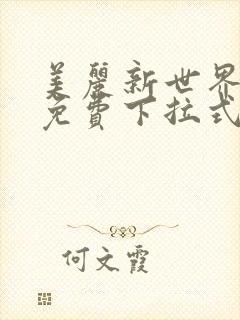 美麗新世界
免費下拉式
何文霞